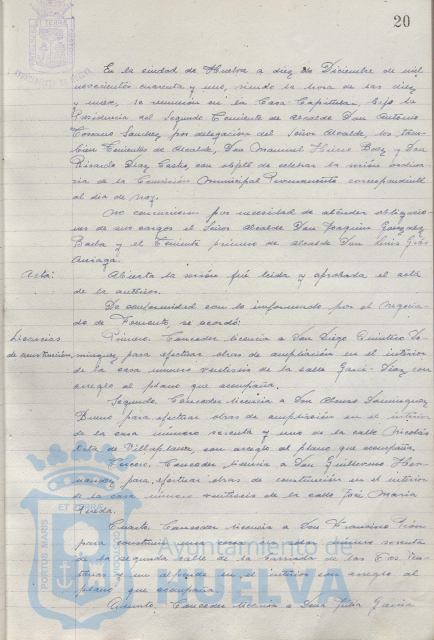 20
En la ciudad de Huelva a diez de Diciembre de mil
novecientos cuarenta y uno, siendo la hora de las diez
y nueve, se reunieron en la Casa Capitular, bajo la
Presidencia del Segundo Teniente de Alcalde Don Antonio
Toscano Sanchez por delegación del Señor Alcalde, los tam-
bien Tenientes de Alcalde, Don Manuel Hierro Baez y Don
Ricardo Diaz Castro, con objeto de celebrar la sesión ordina-
ria de la Comisión Municipal Permanente correspondiente
al dia de hoy.
No concurrieron por necesidad de atender obligacio-
nes de sus cargos el Señor Alcalde Don Joaquin Gonzalez
Barba y el Teniente primero de alcalde Don Luis
Arriaga.
Acta:
Abierta la sesión fué leida y aprobada el acta
de la anterior.
De conformidad con lo informado por el Negocia-
do de Fomento, se acordó:
Licencias
de construcción.
Primero. Conceder licencia a Don Diego Quintero Do-
minguez para efectuar obras de ampliación en el interior
de la casa número veintiséis de la calle Garci-Diaz con
arreglo al plano que acompaña.
Segundo. Conceder licencia a Don Alonso Dominguez
Bueno para efectuar obras de ampliación en el interior
de la casa número sesenta y uno de la calle Nicolás
Orta de Villaplana, con arreglo al plano que acompaña.
Tercero. Conceder licencia a Don Guillermo Her-
nandez para efectuar obras de construcción en el interior
de la casa número veintiseis de la calle José Maria
Rueda.
Cuarto. Conceder licencia a Don Francisco
para construir una casa en el número sesenta
de la segunda calle de la barriada de las
y un en el interior con arreglo al
plano que acompaña.
Quinto. Conceder licencia a Don Garcia
ET TERRA
PORTUS MARIS
CUSTODIA
Ayuntamiento de
HUELVA